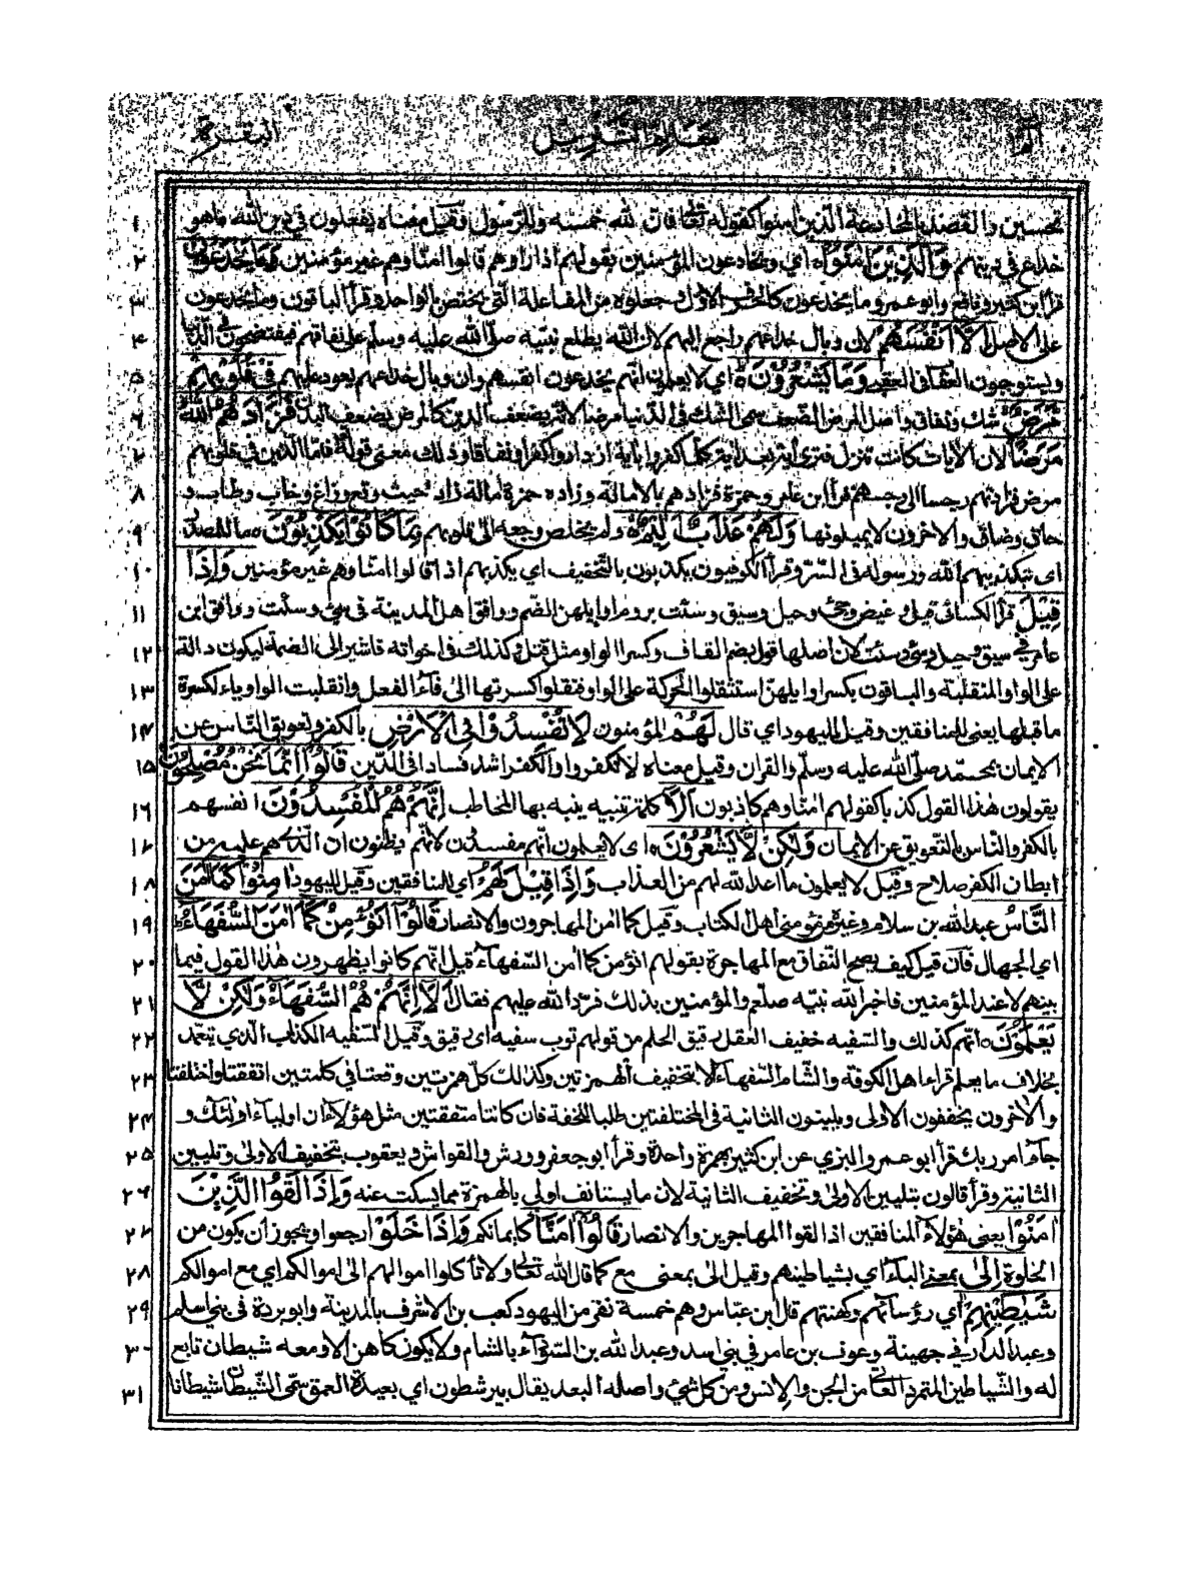 معالم التنزيل
البقرة
١ تحسين والقصد بالمخادعة الذين امنوا كقوله تعالى فان لله خمسه وللرسول وقيل معناه يفعلون في دين الله ماهو
٢ خداع في دينهم وَالَّذِيْنَ اٰمَنُوْاۚ اي ويخادعون المؤمنين بقولهم اذا راوهم قالوا امنا وهم غير مؤمنين وَمَا يَخْدَعُوْنَ
٣ قرأ ابن كثير ونافع وابو عمرو وما يخدعون كالحرف الاول وجعلوه من المفاعلة التي يختص بالواحد وقرأ الباقون وما يخدعون
٤ على الاصل اِلَّآ اَنْفُسَهُمْ لان وبال خداعهم راجع اليهم لان الله يطلع نبيه صلى الله عليه وسلم على نفاقهم فيفتضحون في الدنيا
٥ ويستوجبون العقاب في العقبى وَمَا يَشْعُرُوْنَ۝ اي لا يعلمون انهم يخدعون انفسهم وان وبال خداعهم يعود عليهم فِيْ قُلُوْبِهِمْ
٦ مَّرَضٌ شك ونفاق واصل المرض الضعف سمى الشك في الدين مرضا لانه يضعف الدين كالمرض يضعف البدن فَزَادَهُمُ اللّٰهُ
٧ مَرَضًا لان الايات كانت تنزل تترى اية بعد اية كلما كفروا باية ازدادوا كفرا ونفاقا وذلك معنى قوله فاما الذين في قلوبهم
٨ مرض فزادتهم رجسا الى رجسهم قرأ ابن عامر وحمزة فزادهم بالامالة وزاد حمزة امالة زاد حيث وقع وزاغ وخاب وطاب و
٩ حاق وضاق والاخرون لا يميلونها وَلَهُمْ عَذَابٌ اَلِيْمٌ۝ مولم يخلص وجعه الى قلوبهم بِمَا كَانُوْا يَكْذِبُوْنَ۝ ما للمصدر
١٠ اى بتكذيبهم الله ورسوله في السر وقرأ الكوفيون يكذبون بالتخفيف اي بكذبهم اذ قالوا امنا وهم غير مؤمنين وَاِذَا
١١ قِيْلَ قرأ الكسائي قيل وغيض وجئ وحيل وسيق وسيئت بروم اوايلهن الضم ووافق اهل المدينة في سيئ وسيئت ووافق ابن
١٢ عامر في سيق وحيل وسيئ وسيئت لان اصلها قول بضم القاف وكسر الواو مثل قتل وكذلك في اخواته فاشير الى الضمة ليكون دالة
١٣ على الواو المنقلبة والباقون بكسر اوايلهن استثقلوا الحركة على الواو فنقلوا كسرتها الى فاء الفعل وانقلبت الواو ياء لكسرة
١٤ ما قبلها يعنى للمنافقين وقيل لليهود اي قال لَهُمْ المؤمنون لَا تُفْسِدُوْا فِى الْاَرْضِ بالكفر وتعويق الناس عن
١٥ الايمان بمحمد صلى الله عليه وسلم والقران وقيل معناه لا تكفروا والكفر اشد فسادا في الدين قَالُوْٓا اِنَّمَا نَحْنُ مُصْلِحُوْنَ
١٦ يقولون هذا القول كذبا كقولهم امنا وهم كاذبون اَلَآ كلمة تنبيه ينبه بها المخاطب اِنَّهُمْ هُمُ الْمُفْسِدُوْنَ انفسهم
١٧ بالكفر والناس بالتعويق عن الايمان وَلٰكِنْ لَّا يَشْعُرُوْنَ۝ اى لا يعلمون انهم مفسدون لانهم يظنون ان الذي هم عليه من
١٨ ابطان الكفر صلاح وقيل لا يعلمون ما اعد الله لهم من العذاب وَاِذَا قِيْلَ لَهُمْ اي للمنافقين وقيل لليهود اٰمِنُوْا كَمَآ اٰمَنَ
١٩ النَّاسُ عبد الله بن سلام وغيره من مؤمني اهل الكتاب وقيل كما امن المهاجرون والانصار قَالُوْٓا اَنُؤْمِنُ كَمَآ اٰمَنَ السُّفَهَآءُ
٢٠ اي الجهال فان قيل كيف يصح النفاق مع المجاهرة بقولهم انؤمن كما امن السفهاء قيل انهم كانوا يظهرون هذا القول فيما
٢١ بينهم لا عند المؤمنين فاخبر الله نبيه صلعم والمؤمنين بذلك فرد الله عليهم فقال اَلَآ اِنَّهُمْ هُمُ السُّفَهَآءُ وَلٰكِنْ لَّا
٢٢ يَعْلَمُوْنَ۝ انهم كذلك والسفيه خفيف العقل رقيق الحلم من قولهم ثوب سفيه اى رقيق وقيل السفيه الكذاب الذي يتعمد
٢٣ بخلاف ما يعلم قرأ اهل الكوفة والشام السفهاء الا بتحقيق الهمزتين وكذلك كل همزتين وقعتا في كلمتين اتفقتا او اختلفتا
٢٤ والاخرون يخففون الاولى ويلينون الثانية في المختلفتين طلبا للخفة فان كانتا متفقتين مثل هؤلاء ان اولياء اولئك و
٢٥ جاء امر ربك قرأ ابو عمرو والبزي عن ابن كثير بهمزة واحدة وقرأ ابو جعفر وورش والقواش ويعقوب بتخفيف الاولى وتليين
٢٦ الثانية وقرأ قالون بتليين الاولى وتخفيف الثانية لان ما يستانف اولى بالهمزة مما يسكت عنه وَاِذَا لَقُوا الَّذِيْنَ
٢٧ اٰمَنُوْا يعنى هؤلاء المنافقين اذا لقوا المهاجرين والانصار قَالُوْٓا اٰمَنَّا كايمانكم وَاِذَا خَلَوْا رجعوا ويجوز ان يكون من
٢٨ الخلوة اِلٰى بمعنى الباء اي بشياطينهم وقيل الى بمعنى مع كما قال الله تعالى ولا تأكلوا اموالهم الى اموالكم اي مع اموالكم
٢٩ شَيٰطِيْنِهِمْ اي رؤسائهم وكهنتهم قال ابن عباس وهم خمسة نفر من اليهود كعب بن الاشرف بالمدينة وابو بردة في بني اسلم
٣٠ وعبد الدار في جهينة وعوف بن عامر في بني اسد وعبد الله بن السوداء بالشام ولا يكون كاهن الا ومعه شيطان تابع
٣١ له والشياطين المتمرد العاتي من الجن والانس ومن كل شئ واصله البعد يقال بير شطون اي بعيدة العمق سمى الشيطان شيطانا